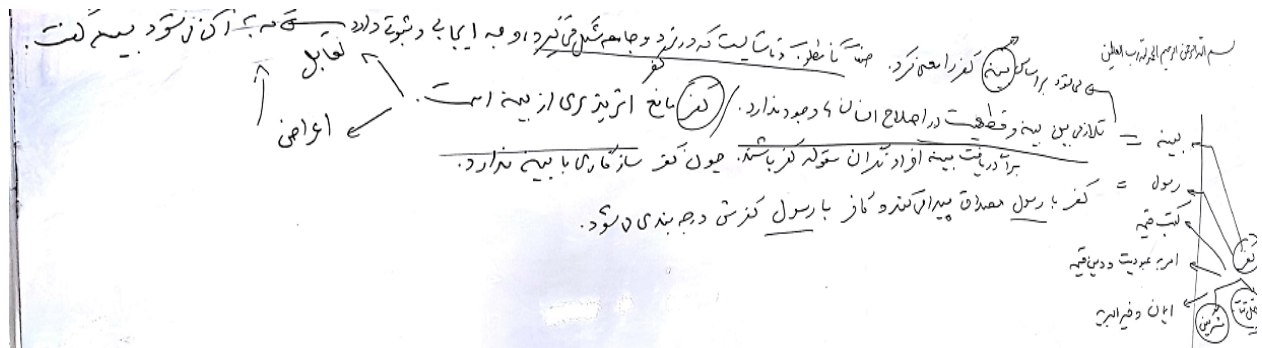 بسم الله الرحمن الرحیم الحمد لله رب العالمین
می‌شود بر اساس بینه کفر را معنی کرد. صفت نامطلوب که در فرد و جامعه شکل می‌گیرد، وجه ایجابی و ثبوتی دارد که به آن نمی‌شود بینه گفت.
تقابل
اعراض
بینه = تلازمی بین بینه و قطعیت در اصلاح انسان‌ها وجود ندارد. / کفر مانع اثرپذیری از بینه است.
کفر
برای دریافت بینه افراد نباید مقوله کفر باشند. چون کفر سازگاری با بینه ندارد.
رسول = کفر با رسول مصداق پیدا می‌کند و کافر با رسول کفرش درجه بندی می‌شود.
کتب قیمه
کفر
امر به عبودیت و دین قیمه
ایمان و خیر البریه
مشرکین